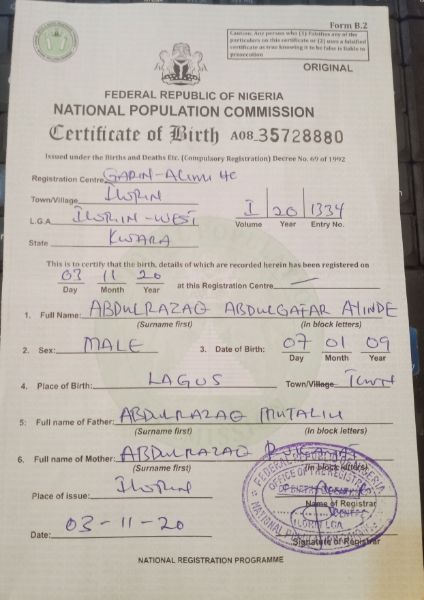 Form B.2
Caution: Any person who (1) Falsifies any of the
particulars on this certificate or (2) uses a falsified
certificate as true knowing it to be false is liable to
prosecution
ORIGINAL
FEDERAL REPUBLIC OF NIGERIA
NATIONAL POPULATION COMMISSION
Certificate of Birth A08 35728880
Issued under the Births and Deaths Etc. (Compulsory Registration) Decree No. 69 of 1992
Registration Centre GARIN-ALIMI HC
Town/Village ILORIN
L.G.A. ILORIN-WEST I 20 1334
Volume Year Entry No.
State KWARA
This is to certify that the birth, details of which are recorded herein has been registered on
03 11 20 at this Registration Centre
Day Month Year
1. Full Name: ABDULRAZAQ ABDULGAFAR AYINDE
(Surname first) (In block letters)
2. Sex: MALE 3. Date of Birth: 07 01 09
Day Month Year
4. Place of Birth: LAGOS Town/Village Town
5. Full name of Father: ABDULRAZAQ MUTALIU
(Surname first) (In block letters)
6. Full name of Mother: ABDULRAZAQ
(Surname first) (In block letters)
Place of issue: ILORIN
Name of Registrar
Date: 03-11-20
Signature of Registrar
FEDERAL REPUBLIC OF NIGERIA
ILORIN LGA
NATIONAL REGISTRATION PROGRAMME